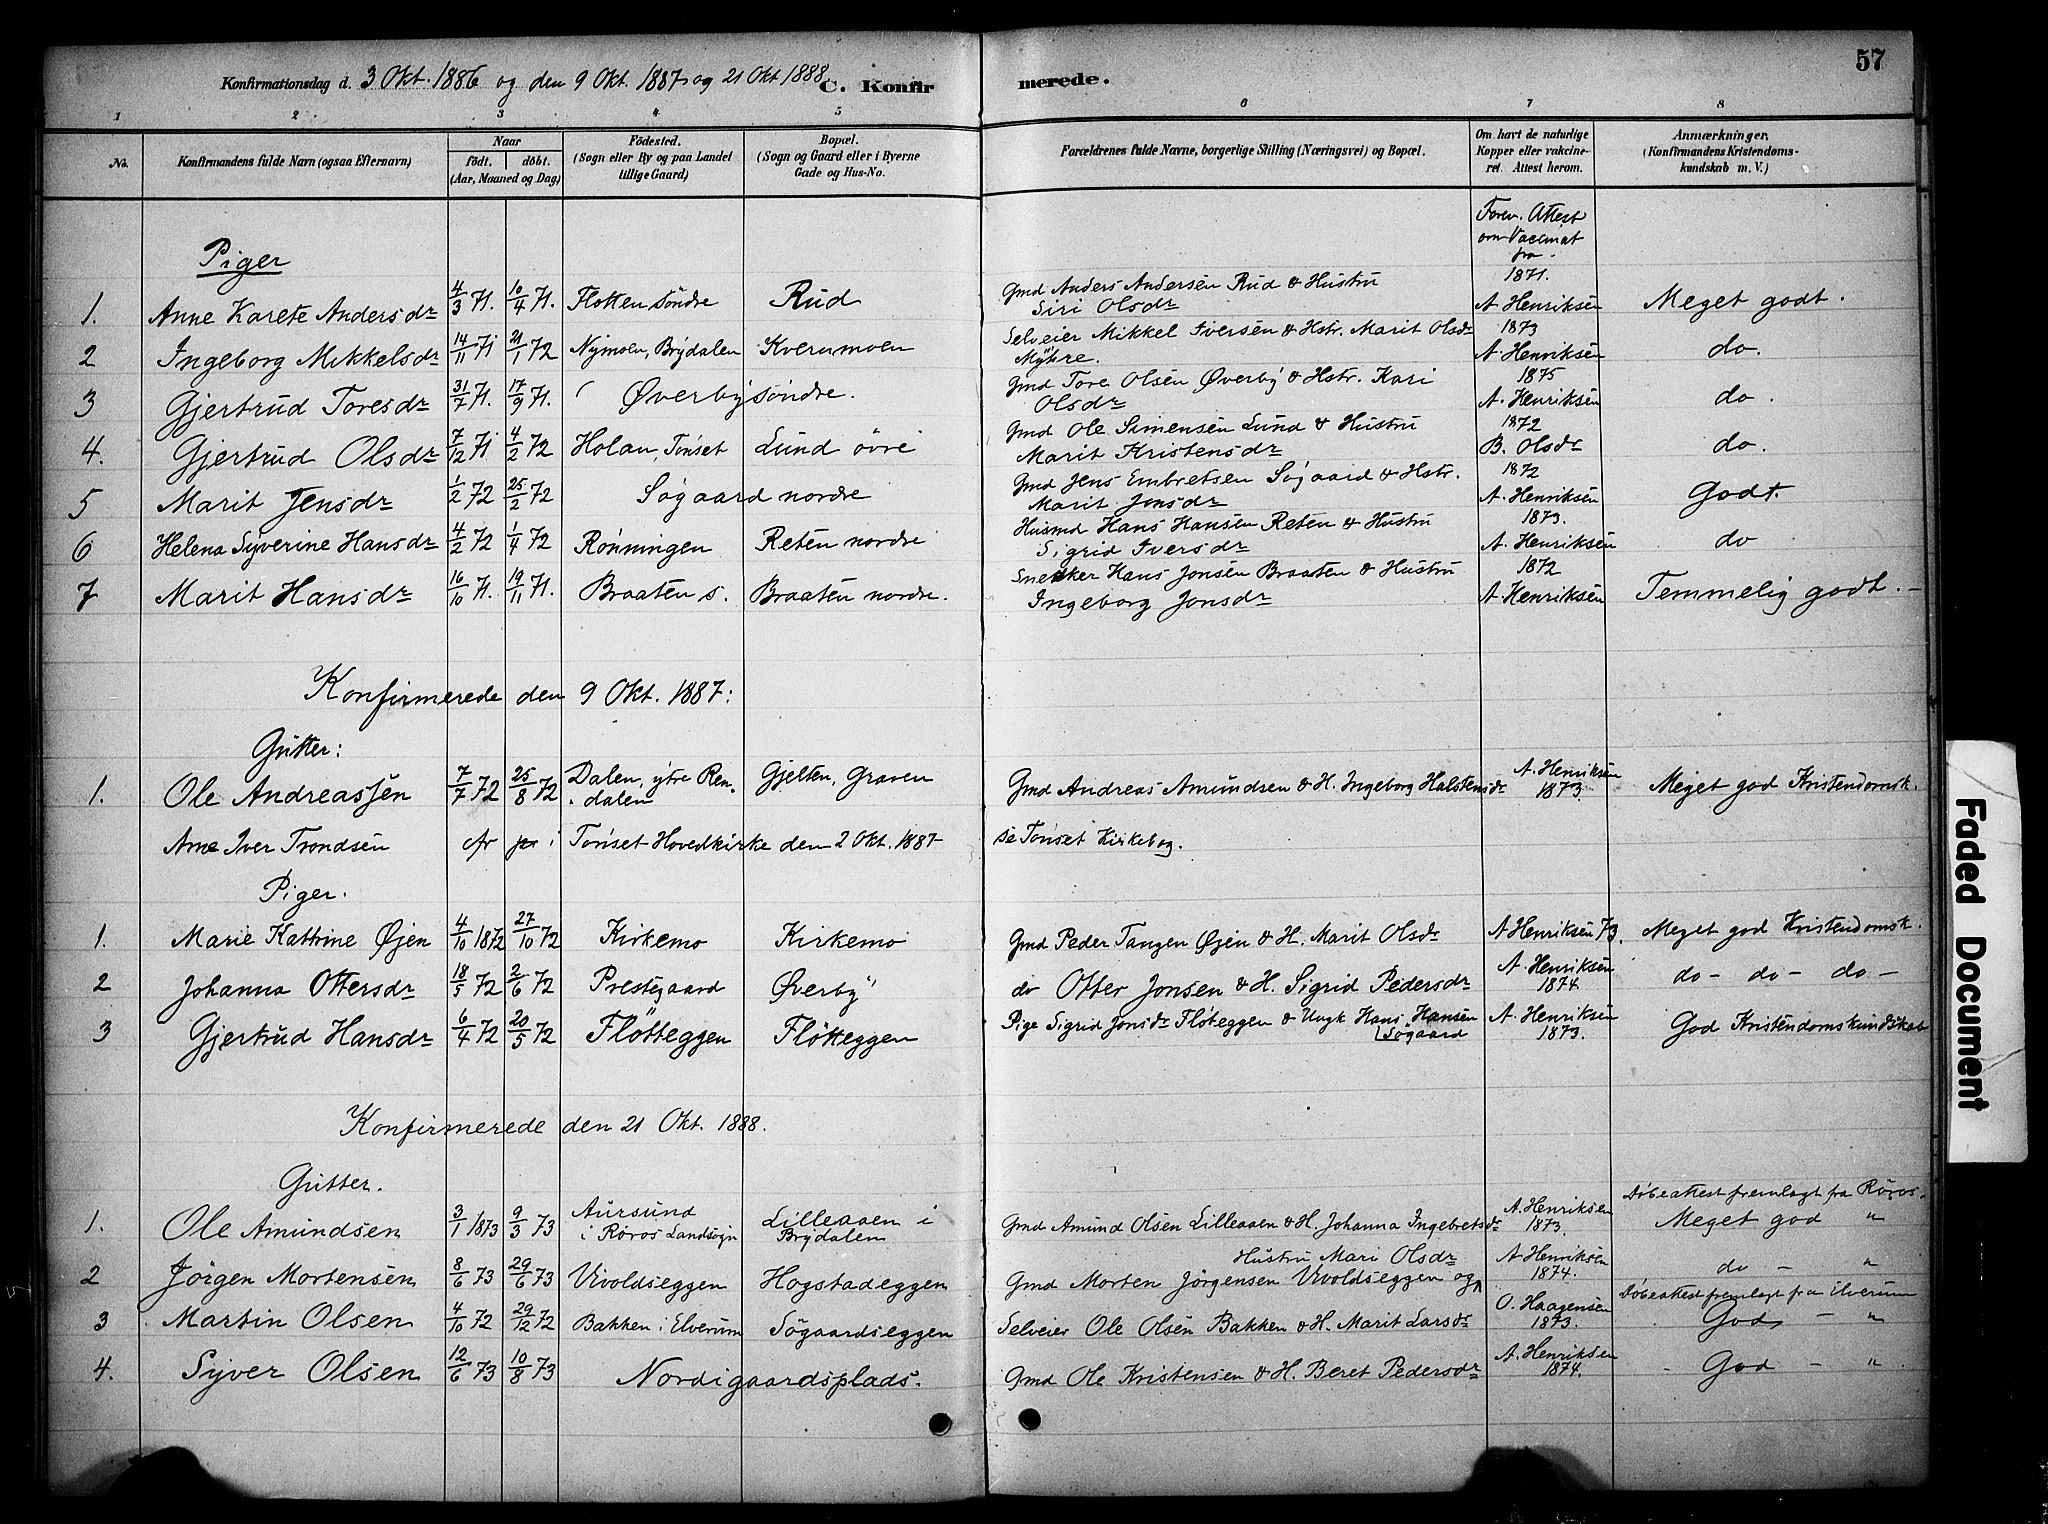 57
Konfirmationsdag d. 3 Okt. 1886 og den 9 Okt. 1887 og 21 Okt 1888 C. Konfirmerede.
1 2 3 4 5 6 7 8
No. Konfirmandens fulde Navn (ogsaa Efternavn) Naar født. døbt. (Aar, Maaned og Dag) Fødested. (Sogn eller By og paa Landet tillige Gaard) Bopæl. (Sogn og Gaard eller i Byerne Gade og Hus-No. Forældrenes fulde Navne, borgerlige Stilling (Næringsvei) og Bopæl. Om havt de naturlige Kopper eller vakcineret. Attest herom. Anmærkninger. (Konfirmandens Kristendomskundskab m. V.)
Forev. Attest om Vaccinat fra
Piger
1. Anne Karete Andersdr 4/3 71. 10/4 71. Flotten søndre Rud Gmd Anders Andersen Rud & Hustru Siri Olsdr 1871. A. Henriksen Meget godt.
2 Ingeborg Mikkelsdr 14/11 71 21/1 72 Nymoen, Brydalen Kvernmoen Selveier Mikkel Iversen & Hstr. Marit Olsdr Myhre. 1873 A. Henriksen do.
3 Gjertrud Toresdr 31/7 71. 17/9 71. Øverby søndre. Gmd Tore Olsen Øverby & Hstr. Kari Olsdr 1875 A. Henriksen do.
4. Gjertrud Olsdr 7/12 71 4/2 72 Holan, Tønset Lund øvre Gmd Ole Simensen Lund & Hustru Marit Kristensdr 1872 B. Olsdr do.
5 Marit Jensdr 1/2 72 25/2 72 Søgaard nordre Gmd Jens Embretsen Søgaard & Hstr. Marit Jonsdr 1872 A. Henriksen Godt.
6 Helena Syverine Hansdr 4/2 72 1/4 72 Rønningen Reten nordre Husmd Hans Hansen Reten & Hustru Sigrid Iversdr 1873. A. Henriksen do
7 Marit Hansdr 16/10 71. 19/11 71. Braaten s. Braaten nordre. Snekker Hans Jonsen Braaten & Hustru Ingeborg Jonsdr 1872 A. Henriksen Temmelig godt. -
Konfirmerede den 9 Okt. 1887:
Gutter:
1. Ole Andreassen 7/7 72 25/8 72 Dalen, ytre Rendalen Gjelten, Graven Gmd Andreas Amundsen & H. Ingeborg Halstensdr A. Henriksen 1873. Meget god Kristendomsk.
Arne Iver Trondsen cfr i Tønset Hovedkirke den 2 Okt. 1887 se Tønset Kirkebog.
Piger.
1. Marie Kathrine Øjen 4/10 1872 27/10 72 Kirkemo Kirkemo Gmd Peder Tangen Øjen & H. Marit Olsdr A Henriksen 73. Meget god Kristendomsk.
2 Johanna Ottersdr 18/5 72 2/6 72 Prestegaard Øverby do Otter Jonsen & H. Sigrid Pedersdr A. Henriksen 1874 do - do - do -
3 Gjertrud Hansdr 6/4 72 20/5 72 Fløtteggen Fløtteggen Pige Sigrid Jonsdr Fløteggen & Ungk Hans Hansen Søgaard A. Henriksen 1873. God Kristendomskundskab
Konfirmerede den 21 Okt. 1888.
Gutter.
1. Ole Amundsen 3/1 1873 9/3 73 Aursund i Røros Landsogn Lilleaaen i Brydalen Gmd Amund Olsen Lilleaaen & H. Johanna Ingebretsdr A. Henriksen 1873. Døbeattest fremlagt fra Røros. Meget god "
2 Jørgen Mortensen 8/6 73 29/6 73 Urvoldseggen Hogstadeggen Gmd Morten Jørgensen Urvoldseggen og Hustru Mari Olsdr A. Henriksen 1874. do - "
3 Martin Olsen 4/10 72 29/12 72 Bakken i Elverum Søgaardseggen Selveier Ole Olsen Bakken & H. Marit Larsdr O. Haagensen 1873. Døbeattest fremlagt fra Elverum God - "
4. Syver Olsen 12/6 73 10/8 73 Nordigaardsplads. Gmd Ole Kristensen & H. Beret Pedersdr A. Henriksen 1874. - God - "
Faded Document